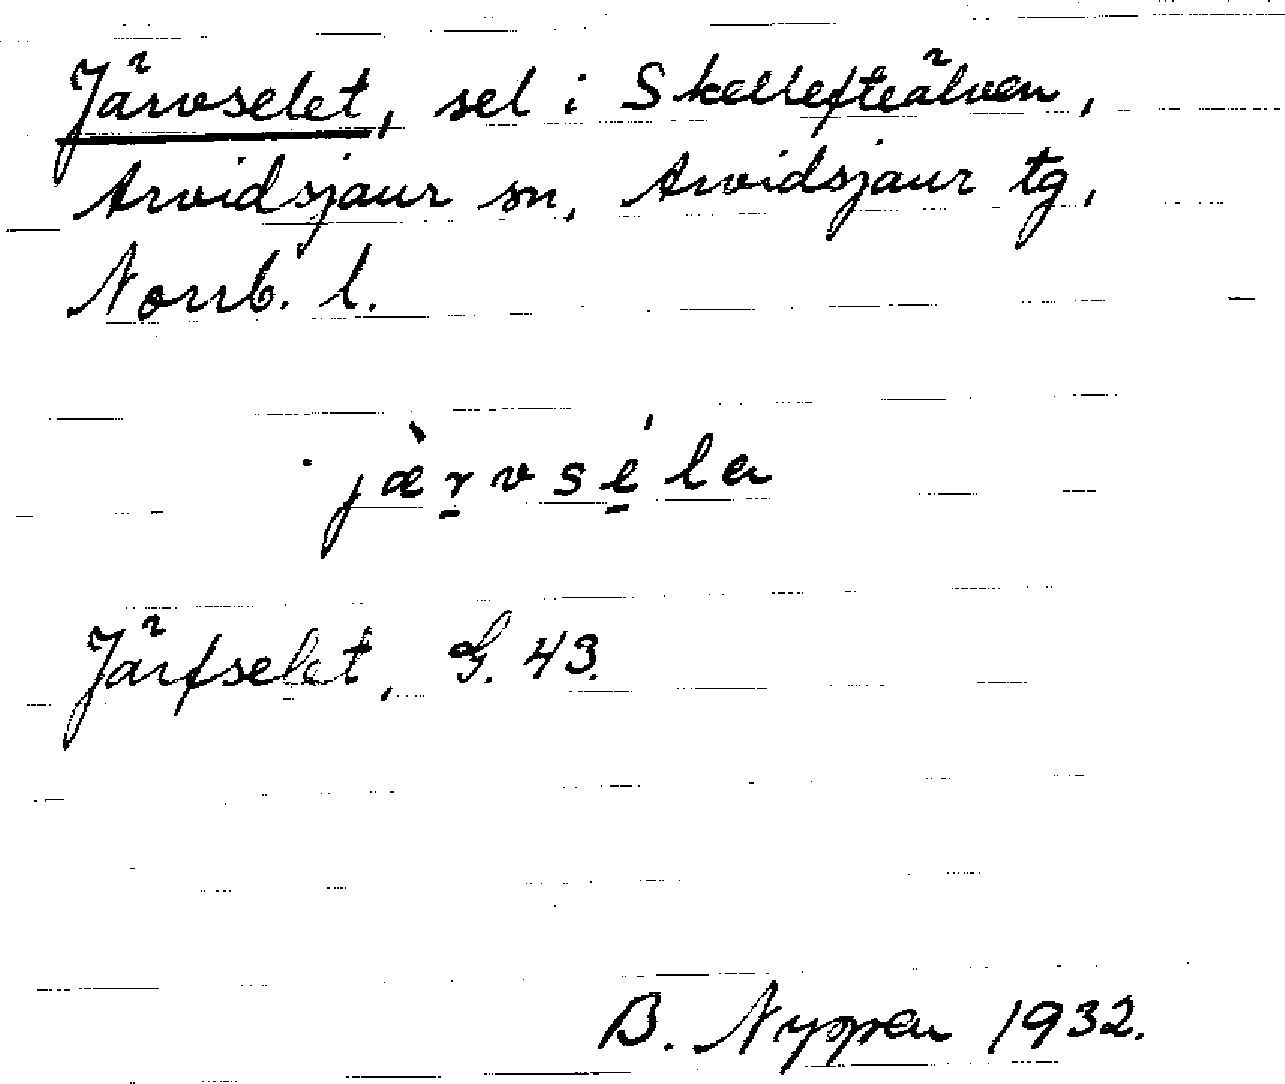 Järvselet, sel i Skellefteälven,
Arvidsjaur sn, Arvidsjaur tg,
Norrb. l.
jæ̀r̠vsé̠la
Järfselet, G. 43.
B. 1932.